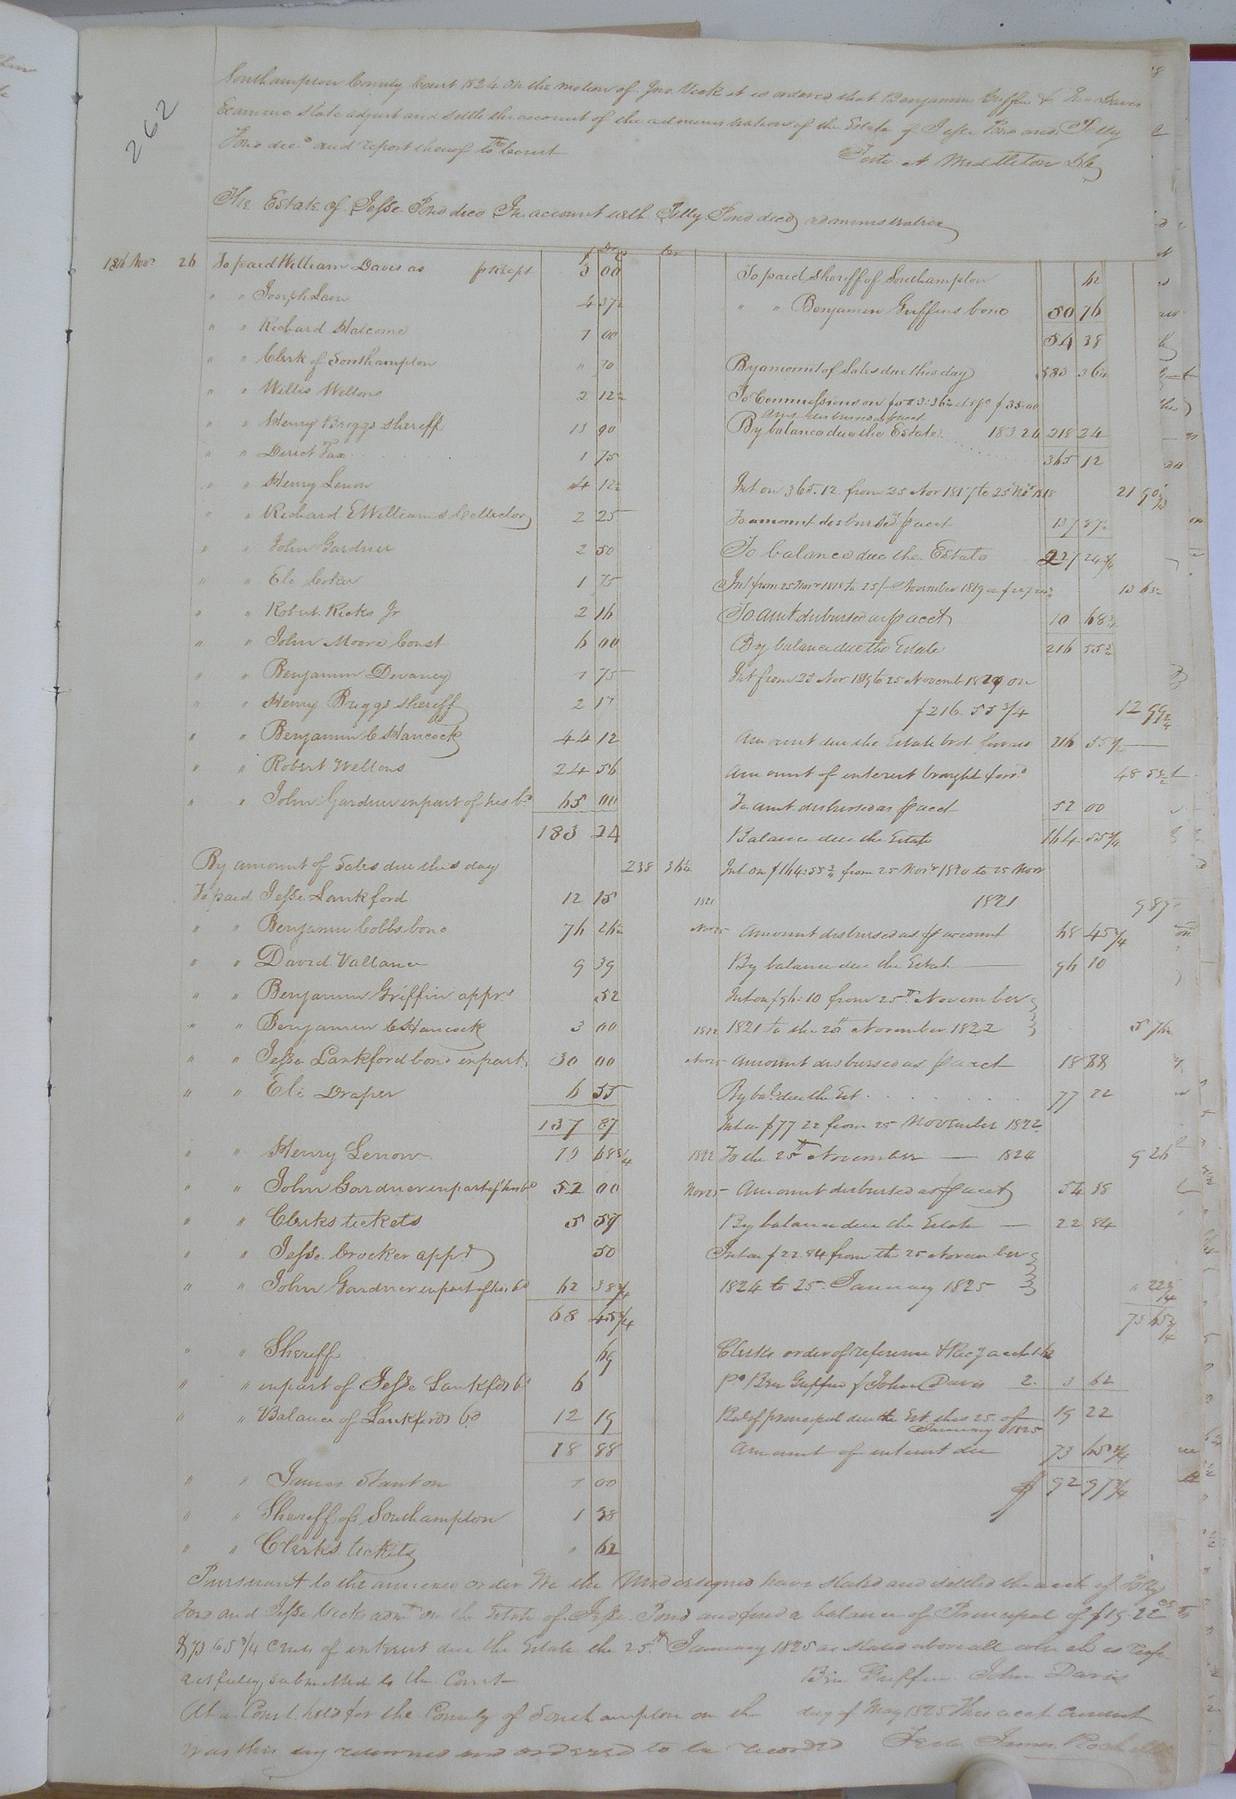 262
Southampton County Court 1824 On the motion of Jno Vick it is ordered that Benjamin Griffin & Jno Davis
Examine State adjust and settle the account of the administration of the Estate of Jesse Pond and Tilly
Pond decd and report thereof to Court
Teste A Middleton
The Estate of Jesse Pond decd In account with Tilly Pond decd administratrix
Novr 26 To paid William Davis as pr receipt 3 00
" " Joseph 4 37½
" " Richard Halcome 1 00
" " Clerk of Southampton " 70
" " Willis Wellons 2 12½
" " Henry Briggs Sheriff 13 90
" " Direct Tax 1 75
" " Henry Lenow 4 12½
" " Richard E Williams Collector 2 25
" " John Gardner 2 50
" " Eli 1 75
" " Robert Ricks Jr 2 16
" " John Moore Const 6 00
" " Benjamin Devaney 1 75
" " Henry Briggs Sheriff 2 17
" " Benjamin C Hancock 44 12
" " Robert Wellons 24 56
" " John Gardner in part of his bd 65 00
183 24
By amount of Sales due this day 238 36½
To paid Jesse Lankford 12 15
" " Benjamin Cobbs bond 76 26½
" " David Vallance 9 39
" " Benjamin Griffin appr 52
" " Benjamin C Hancock 3 00
" " Jesse Lankford bond in part 30 00
" " Eli Draper 6 55
137 87
" " Henry Lenow 10 68¾
" " John Gardner in part of his bd 52 00
" " Clerks tickets 5 57
" " Jesse Crocker appr 50
" " John Gardner in part of his bd 62 38¾
68 45¾
" " Sheriff 69
" " in part of Jesse Lankford bd 6
" " Balance of Lankfords bd 12 19
18 88
" " James Stanton 1 00
" " Sheriff of Southampton 1 38
" " Clerks tickets " 62
To paid Sheriff of Southampton 62
" " Benjamin Griffins bond 50 76
54 38
By amount of Sales due this day 583 36½
To Commissions on
Amt disbursed as pr acct
By balance due the Estate 183 24 218 24
365 12
Int on 365.12 from 25 Nor 1817 to 25 Nov 1818 21 90
To amount disbursed pr acct 137 87½
To balance due the Estate 227 24¼
Int from 25 Novr 1818 to 25 November 1819 13 63½
To Amt disbursed as pr acct 10 68¾
By balance due the Estate 216 55¾
Int from 25 Nov 1819 to 25 November 1820 on
$216.55¾ 12 99¼
Amount due the Estate brot forwd 216 55¾
Amount of interest brought ford 48 53½
To amt disbursed as pr acct 52 00
Balance due the Estate 164 55¾
Int on $164.55¾ from 25 Novr 1820 to 25 Novr
1821 1821 9 87
Nov 25 Amount disbursed as pr account 68 45¾
By balance due the Estate 96 10
Int on $96.10 from 25th November
1822 1821 to the 25th November 1822 5 76
Nov 25 Amount disbursed as pr acct 18 88
By bal due the Est 77 22
Int on $77 22 from 25 November 1822
1822 To the 25th November 1824 9 26
Nov 25 Amount disbursed as pr acct 54 38
By balance due the Estate 22 84
Int on $22.84 from the 25 November
1824 to 25 January 1825 " 22¾
73 65¾
Clerks order of reference & Recg acct
Pd Ben Griffin & John Davis 2. 3 62
Bal of principal due the Est this 25 of
January 1825 19 22
Amount of interest due 73 65¾
$ 92 87¾
Pursuant to the annexed order We the Undersigned have stated and settled the acct of Tilly
Pond and Jesse Vick admr on the Estate of Jesse Pond and find a balance of Principal of $19.22cts
& 73 65¾ Cents of interest due the Estate the 25th January 1825 as stated above all which is resp
ectfully submitted to the Court Ben Griffin John Davis
At a Court held for the County of Southampton on the day of May 1825 This acct Current
was this day returned and ordered to be recorded Teste James Rochelle